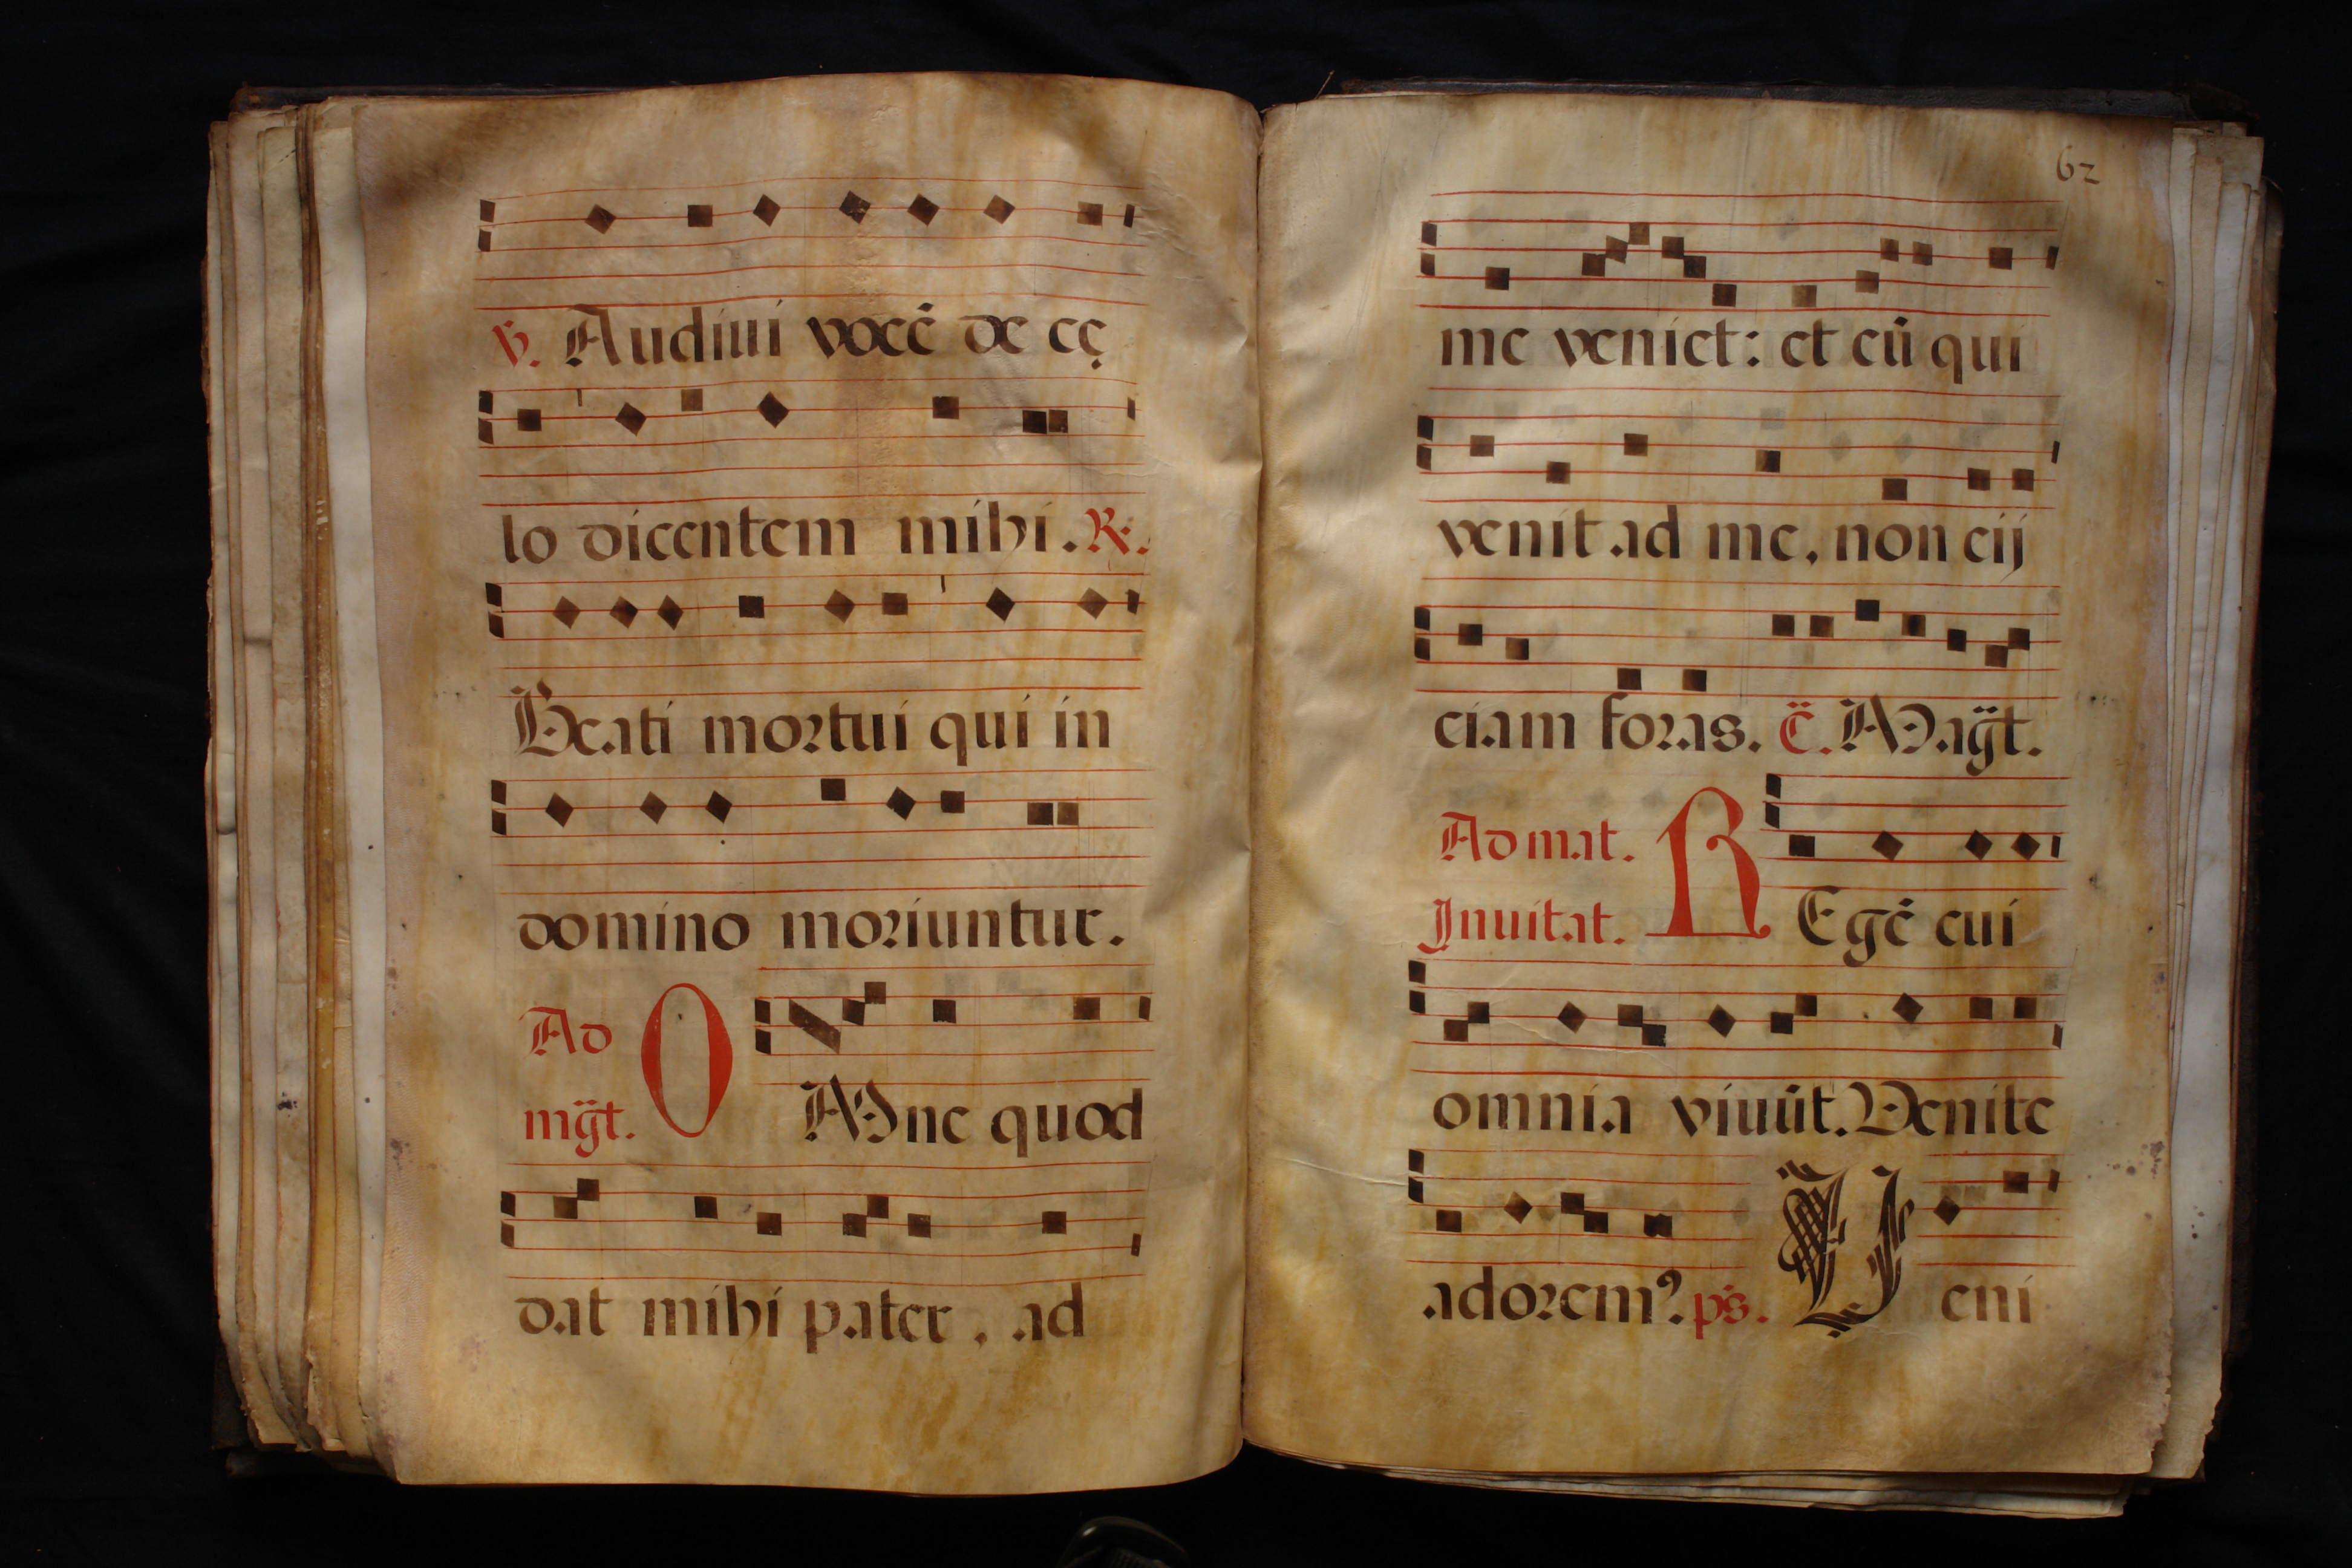 ℣. Audiui vocē de cę
lo dicentem mihi. ℟.
Beati mortui qui in
domino moriuntur.
Ad
mgt̃.
O Mne quod
dat mihi pater, ad
62
me veniet: et eū qui
venit ad me, non eij
ciam foras. c̃. Magt̃.
Ad mat.
Inuitat.
R Egē cui
omnia viuūt. Venite
adorem⁹. ps̃. V eni